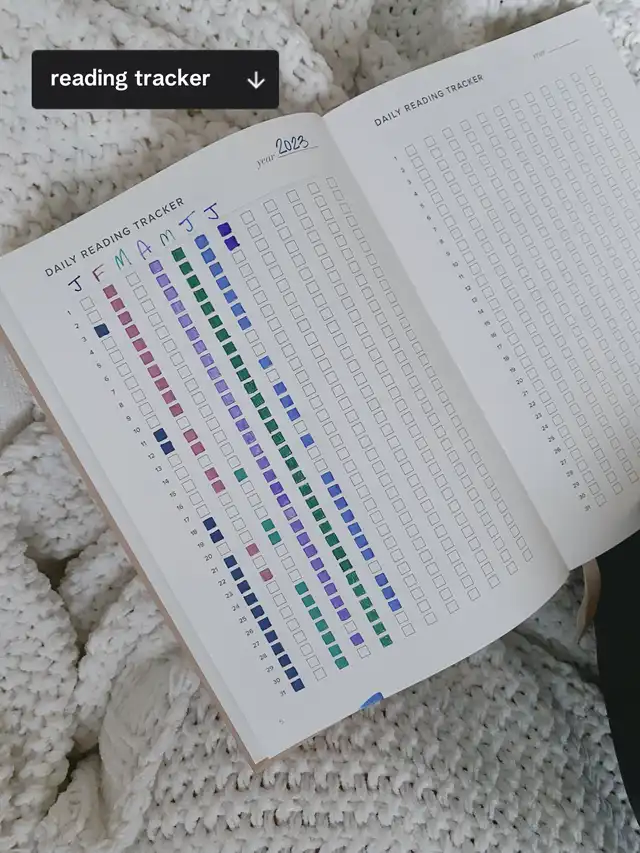 reading tracker ↓
year 2023
DAILY READING TRACKER
J F M A M J J
1
2
3
4
5
6
7
8
9
10
11
12
13
14
15
16
17
18
19
20
21
22
23
24
25
26
27
28
29
30
31
year
DAILY READING TRACKER
1
2
3
4
5
6
7
8
9
10
11
12
13
14
15
16
17
18
19
20
21
22
23
24
25
26
27
28
29
30
31